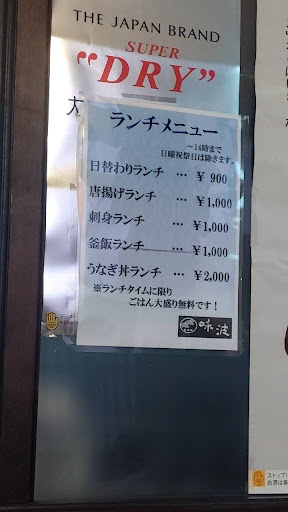 THE JAPAN BRAND
SUPER
“DRY”
ランチメニュー
～14時まで
日曜祝祭日は除きます。
日替わりランチ … ¥ 900
唐揚げランチ … ¥1,000
刺身ランチ … ¥1,000
釜飯ランチ … ¥1,000
うなぎ丼ランチ … ¥2,000
※ランチタイムに限り
ごはん大盛り無料です！
味波
ストップ
お酒は楽